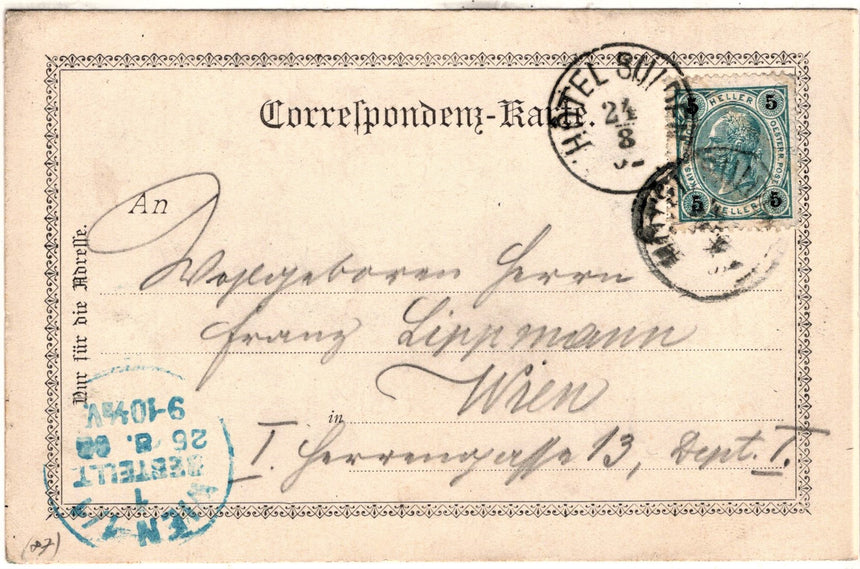 Correſpondenz-Karte.
HOTEL SULDEN
24
8
5 HELLER 5
OESTERR. POST
5 HELLER 5
An
Nur für die Adreſſe.
Wohlgeboren Herrn
Franz Lippmann
Wien
in
I. Herrengasse 13, Dept. I.
WIEN 1/1
1
BESTELLT
26. 8. 02
9-10½V
(87)